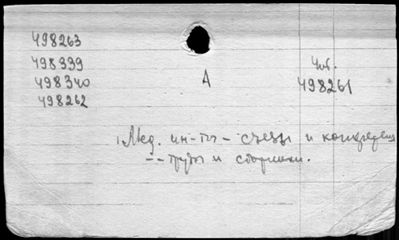 498263
498339
498340
498262
А
Чит.
498261
Мед. ин-ты - съезды и конференц
-- труды и сборники.